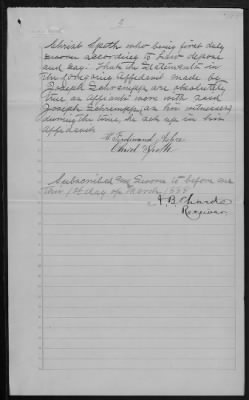 2
Christ Spoth who being first duly
sworn according to law depose
and say. That the Statements in
the foregoing Affidavit made by
Joseph Schrempp are absolutely
true as affiants were with said
Joseph Schrempp, as his witnesses
during the time, he set up in his
affidavit
Ferdinand
Christ Spoth
Subscribed and Sworn to before me
this 1st day of March 1888
Register